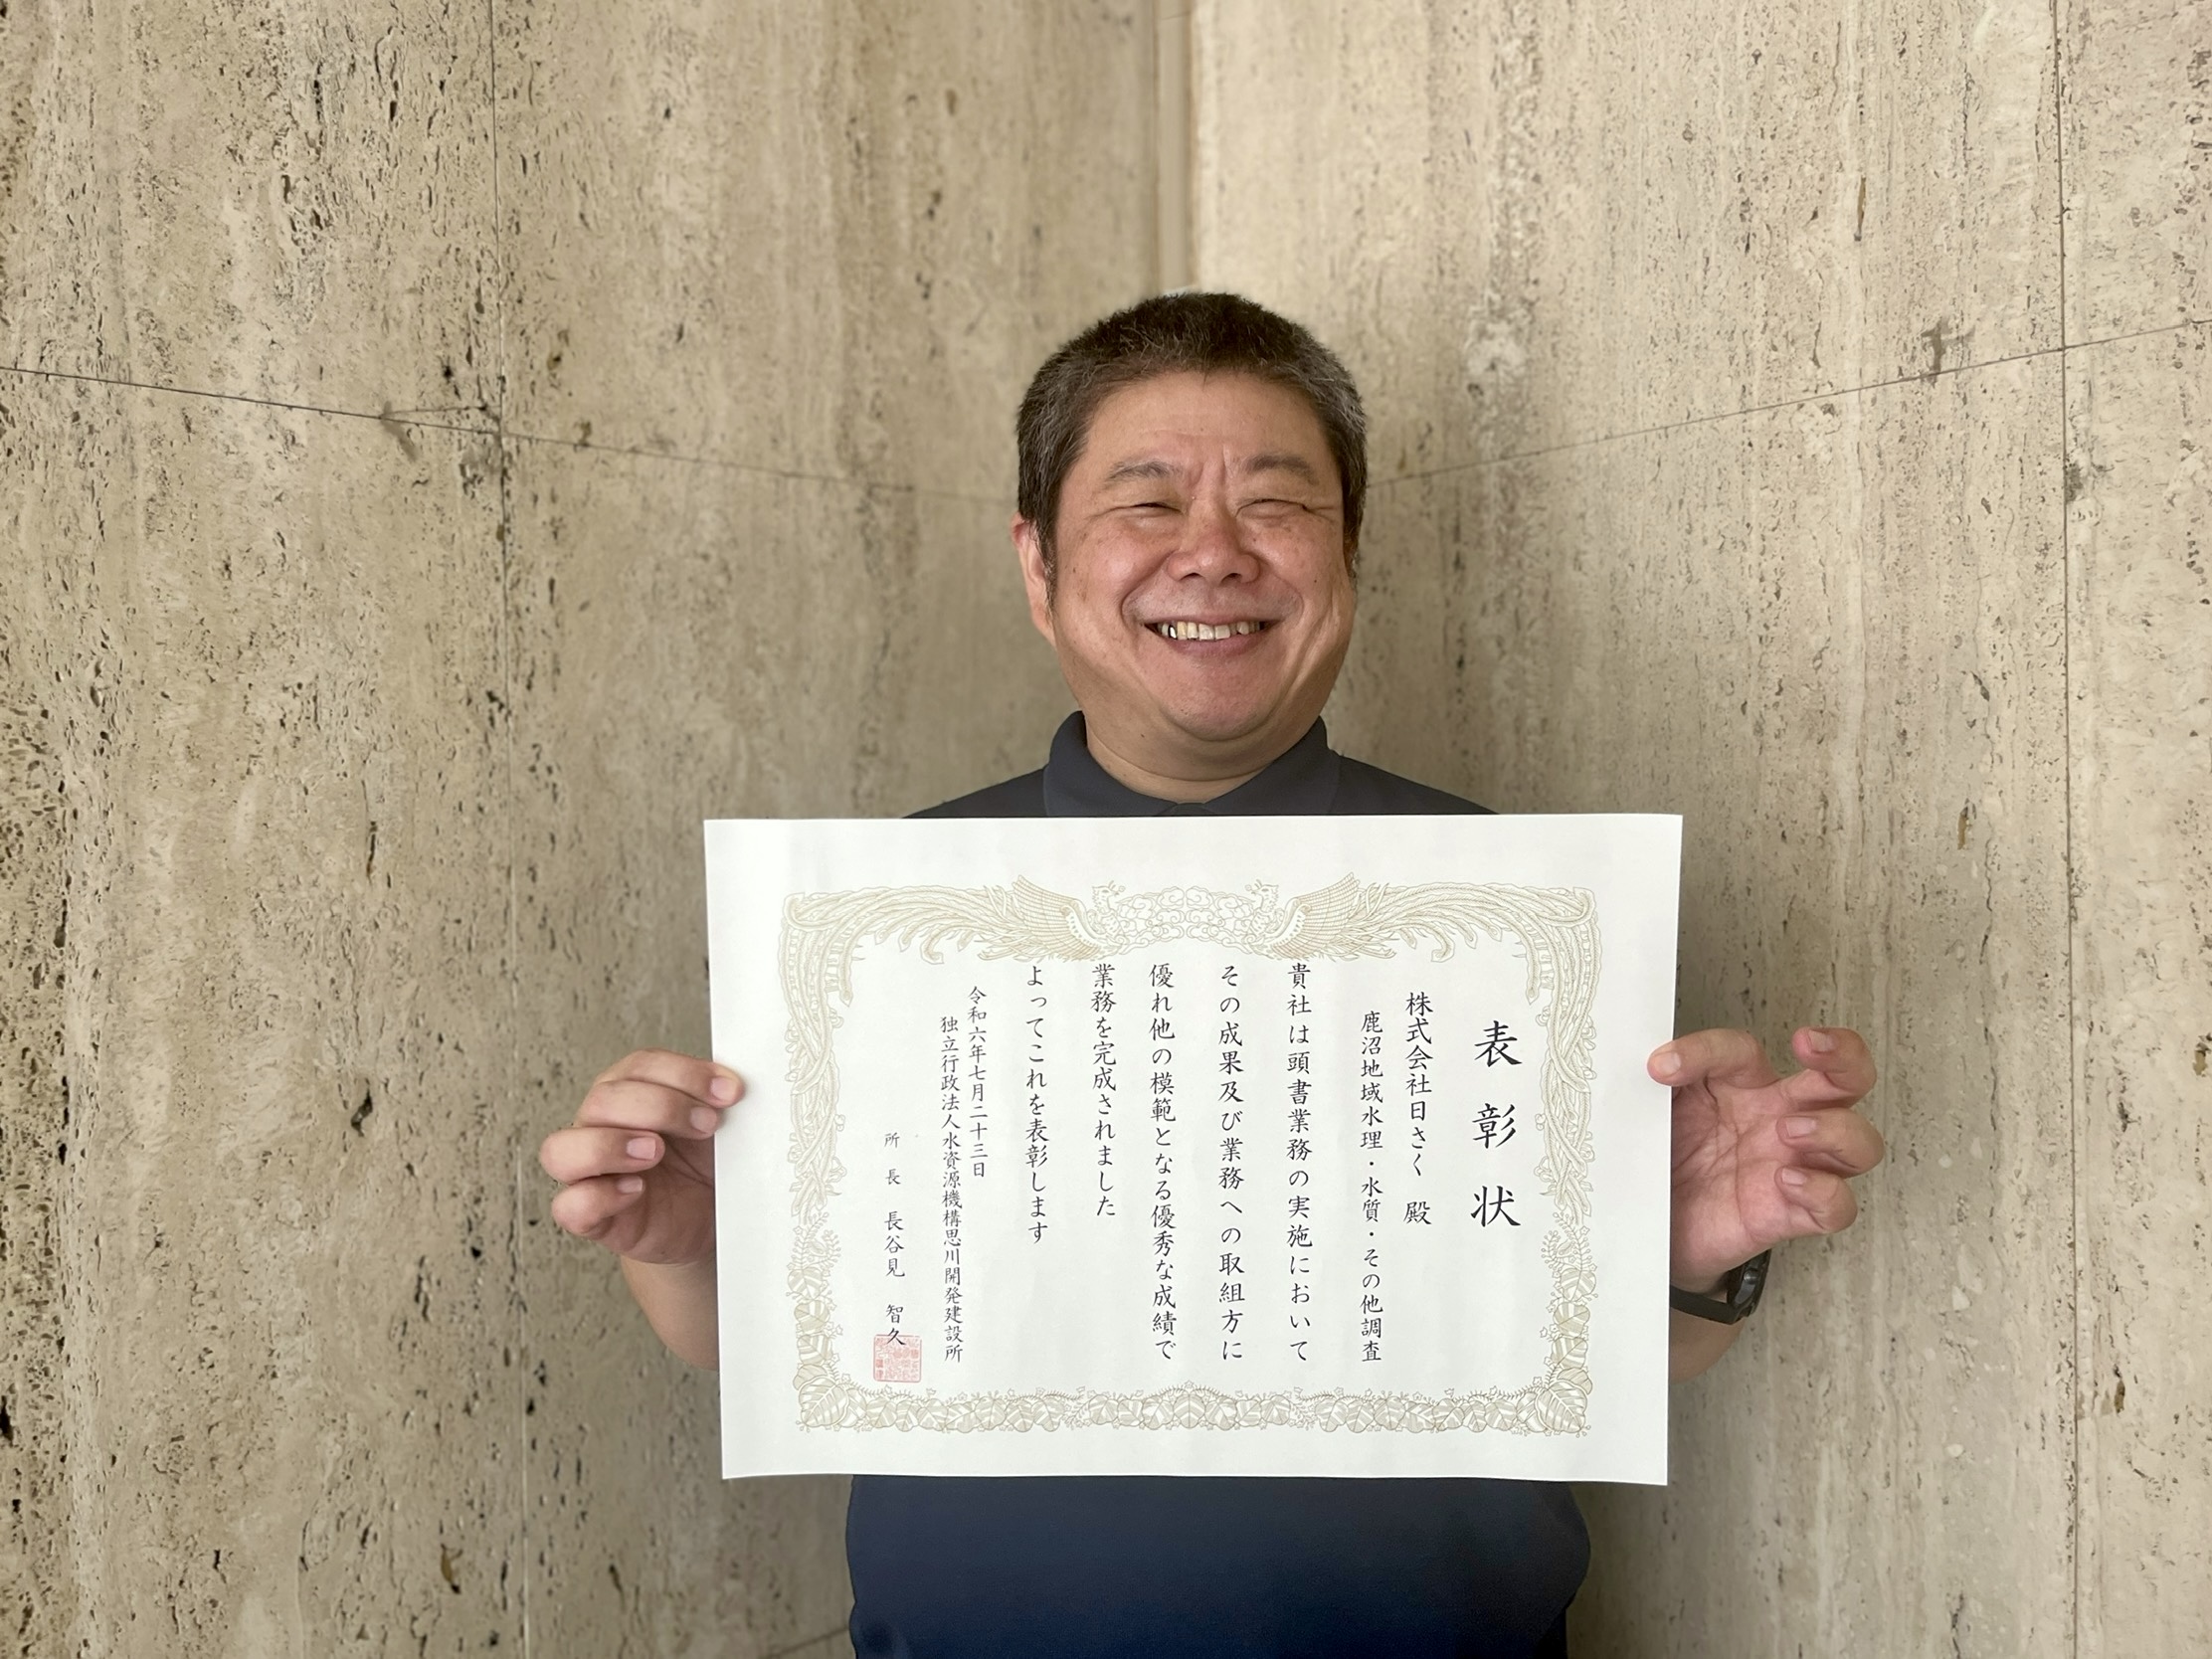 表彰状
株式会社日さく 殿
鹿沼地域水理・水質・その他調査
貴社は頭書業務の実施において
その成果及び業務への取組方に
優れ他の模範となる優秀な成績で
業務を完成されました
よってこれを表彰します
令和六年七月二十三日
独立行政法人水資源機構思川開発建設所
所長 長谷見 智久